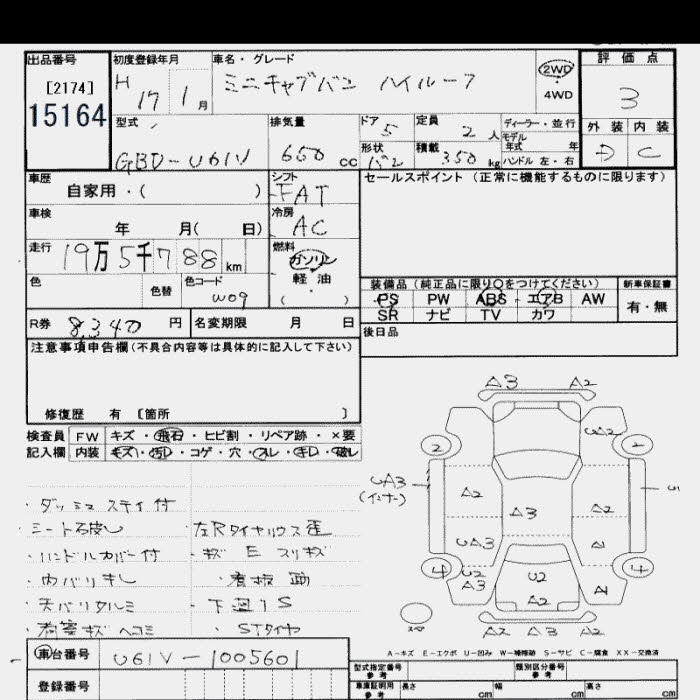 出品番号
[2174]
15164
初度登録年月
H 17 1月
車名・グレード
ミニキャブバン ハイルーフ
2WD
4WD
評価点
3
外装 内装
D C
型式
GBD-U61V
排気量
650 cc
ドア 5
形状 バン
定員 2人
積載 350 kg
ディーラー・並行
モデル
年式 年
ハンドル 左・右
車歴
自家用・( )
シフト
FAT
セールスポイント (正常に機能するものに限ります)
車検
年 月( 日)
冷房
AC
走行
19万5千788km
燃料
ガソリン
軽・油
( )
色
色替
色コード
W09
装備品(純正品に限り○をつけてください)
新車保証書
PS PW ABS エアB AW
SR ナビ TV カワ
有・無
R券 8,340円
名変期限 月 日
後日品
注意事項申告欄(不具合内容等は具体的に記入して下さい)
修復歴 有 〔箇所 〕
検査員 FW キズ・飛石・ヒビ割・リペア跡・×要
記入欄 内装 キズ・汚レ・コゲ・穴・スレ・キレ・破レ
A3 A2
2 UA2 2
UA3
(インナー)
A2 A2
A3
UA3 A1
4 U2 U2 4
A3 A2 A1
A2 A3 A2
・ダッシュステイ付
・シート破レ
左Rタイヤハウス歪
・ハンドルカバー付
・キズ E スリキズ
・内バリキレ
・看板跡
・天バリタルミ
・下廻りS
・荷室キズヘコミ
・STタイヤ
A-キズ E-エクボ U-凹み W-補修跡 S-サビ C-腐食 XX-交換済
車台番号
U61V-1005601
登録番号
型式指定番号
参考
類別区分番号
参考
車庫証明用
参考
長さ cm 幅 cm 高さ cm